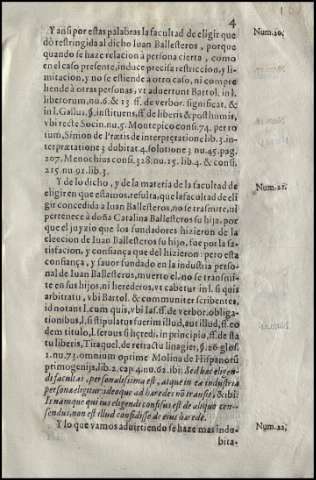 4
Y ansi por estas palabras la facultad de eligir que
dò restringida al dicho Iuan Ballesteros, porque
quando se haze relacion à persona cierta, como
en el caso presente, induce precisa restriccion, y li
mitacion, y no se estiende à otro caso, ni compre
hende à otras personas, vt aduertunt Bartol. in l.
liberorum, nu. 6. & 13 ff. de verbor. significat. &
in l. Gallus. §. instituens, ff. de liberis & posthumis,
vbi recte Socin. nu. 5. Montepico cons. 74. per to
tum, Simon de Prætis de interpretatione lib. 3. in-
terprætatione 3 dubitat 4. solotione 3 nu. 45. pag.
207. Menochius cons. 328. nu. 15. lib. 4. & cons.
215. nu. 91. lib. 3.
Y de lo dicho, y de la materia de la facultad de
eligir en que estamos, resulta, que la facultad de eli
gir concedida a Iuan Ballesteros, no se trasmite, ni
pertenece à doña Catalina Ballesteros su hija, por
que el juyzio que los fundadores hizieron de la
eleccion de Iuan Ballesteros su hijo, fue por la sa-
tisfacion, y confiança que del hizieron: pero esta
confiança, y fauor fundado en la industria perso
nal de Iuan Ballesteros, muerto el, no se transmi-
te en sus hijos, ni herederos, vt habetur in l. si quis
arbitratu, vbi Bartol. & communiter scribentes,
id notant l. cum quis, vbi Ias. ff. de verbor. obliga-
tionibus, l. si stipulatus fuerim illud, aut illud, ff. eo
dem titulo, l. seruus si hæredi, in princip. ff. de sta
tu liberis, Tiraquel. de retractu linagier, §. 26 glos.
1. nu. 73. omnium optime Molina de Hispanorũ
primogenijs, lib. 2. cap. 4. nu. 62. ibi: Sed hæc eligen
di facultas, personalissima est, atque in ea industria
personæ eligitur: ideoque ad hæredes nõ transit, & ibi:
Is namque qui ius eligendi confisus est de aliquo con-
sendus, non est illud confidisse de eius hærede.
Y lo que vamos aduirtiendo se haze mas indu-
bita-
Num. 20.
Num. 21.
Num. 22,